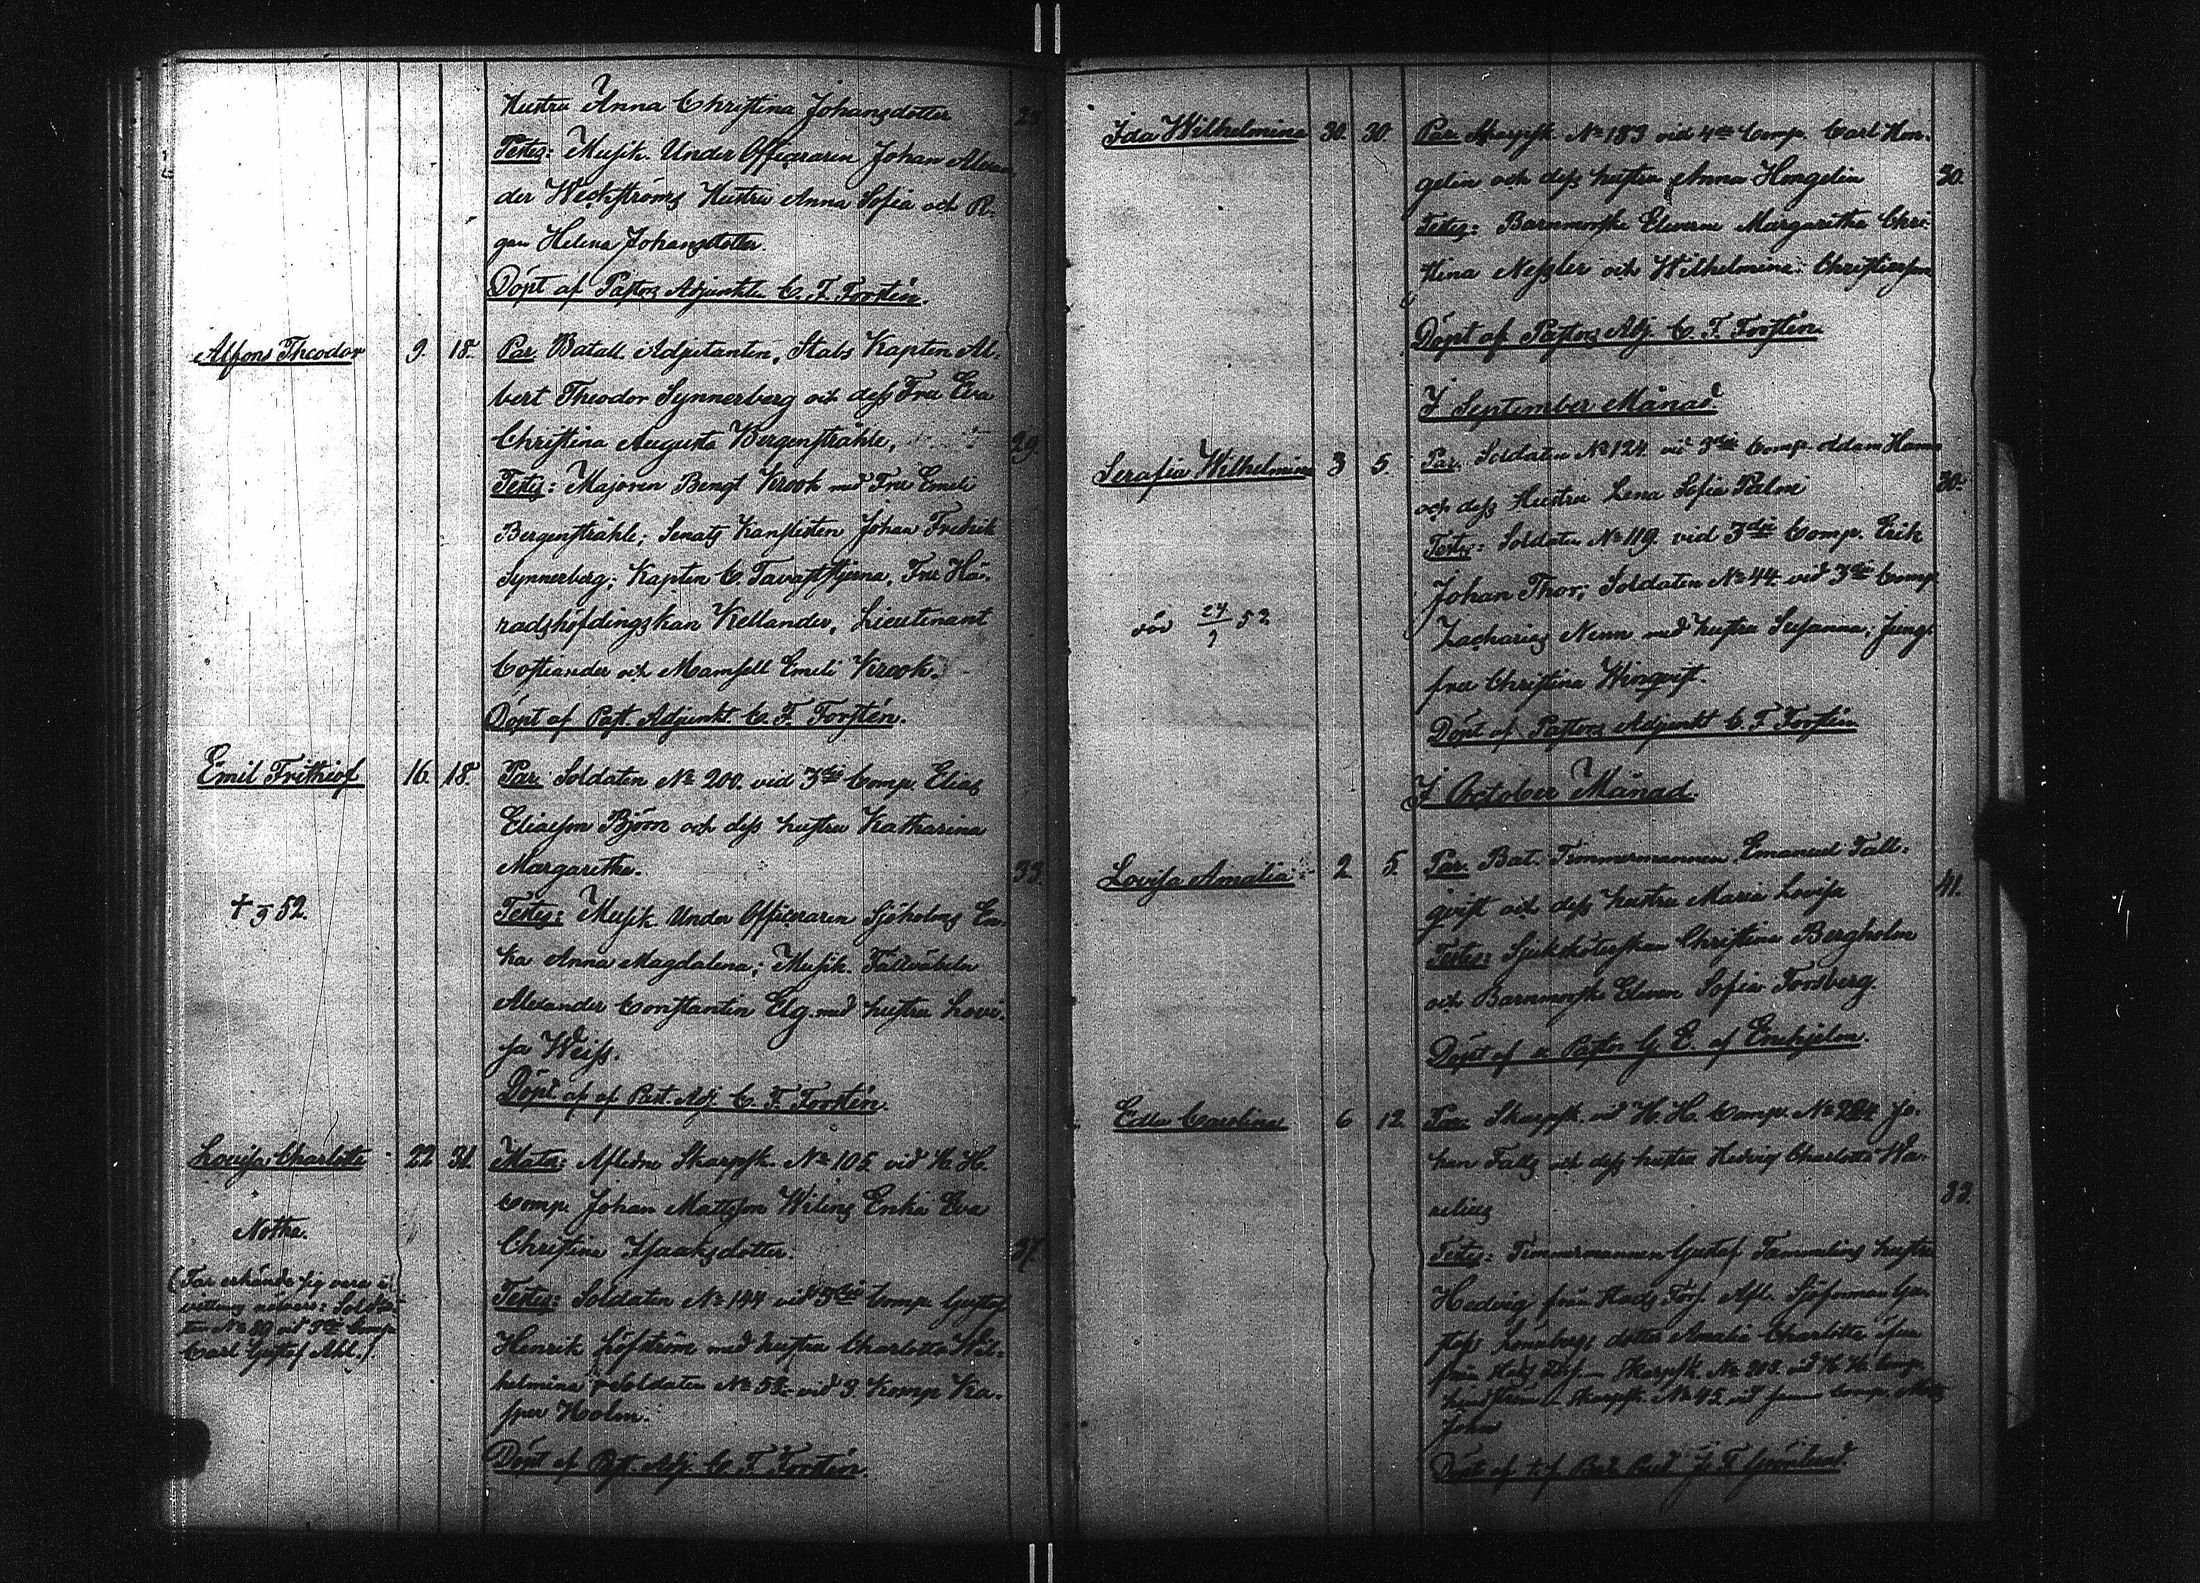 Hustru Anna Christina Johansdotter 23
Testes: Musik. Under Officeraren Johan Alexan
der Weckströms Hustru Anna Sofia och Pi-
gan Helena Johansdotter.
Döpt af Pastors Adjunkten C. F. Forstén.
Alfons Theodor 9. 18. Par. Batall. Adjutanten, Stabs Kapten Al-
bert Theodor Synnerberg och dess Fru Eva
Christina Augusta Bergenstråhle, 29.
Testes: Majoren Bengt Krook med Fru Emeli
Bergenstråhle; Senats Kanslisten Johan Fredrik
Synnerberg; Kapten C. Tavaststjerna, Fru Hä-
radshöfdingskan Kellander, Lieutenant
Costiander och Mamsell Emeli Krook.
Döpt af Past. Adjunkt. C. F. Forstén.
Emil Frithiof 16. 18. Par. Soldaten No 200. vid 3dje Comp. Elias
Eliasson Björn och dess hustru Katharina
Margaretha. 33.
† 52. Testes: Musik. Under Officeraren Sjöholms En-
ka Anna Magdalena; Musik. Fältväbeln
Alexander Constantin Elg med hustru Lovi-
sa Weiss.
Döpt af Past. Adj. C. F. Forstén.
Lovisa Charlotta 22 31. Mater: Afledne Skarpsk. No 105 vid H. H.
Comp. Johan Mattsson Wilins Enka Eva
Nothe. Christina Isaaksdotter. 37.
(Far erkände sig vara
Solda-
ten vid 3dje Comp.
Carl Gustaf Ahl.)
Testes: Soldaten No 144 vid 3dje Comp. Gustaf
Henrik Löfström med hustru Charlotta Wil-
helmina Soldaten No 52 vid 3. Komp. Ka-
sper Holm.
Döpt af Past. Adj. C. F. Forstén.
Ida Wilhelmina 30. 30. Par. Skarpsk. No 183 vid 4de Comp. Carl Hon-
gelin och dess hustru Anna Hongelin 30.
Testes: Barnmorske Eleverne Margaretha Chri-
stina Nessler och Wilhelmina Christiansson
Döpt af Pastors Adj. C. F. Forstén.
I September Månad
Serafia Wilhelmina 3 5. Par. Soldaten No 124. vid 3dje Comp. Adam
och dess Hustru Lena Sofia 30.
Testes: Soldaten No 119. vid 3dje Comp. Erik
Johan Thor; Soldaten No 44. vid 3dje Comp.
död 24/9 52 Zacharias Nenn med hustru Susanna; Jung-
fru Christina Wingvist.
Döpt af Pastors Adjunkt C. F. Forstén
I October Månad.
Lovisa Amalia 2 5. Par. Bat. Timmermannen Emanuel Fall-
qvist och dess hustru Maria Lovisa 41.
Testes: Sjuksköterskan Christina Bergholm
och Barnmorske Eleven Sofia Forsberg.
Döpt af Pastor G. E. af Enehjelm.
Edla Carolina 6 12 Par. Skarpsk. vid H. H. Comp. No 264. Jo-
han Falls och dess hustru Hedvig Charlotta Wa-
relius 33.
Testes: Timmermannen Gustaf Tammelins hustru
Hedvig från Afl. Sjöforman Gu-
stafs dotter Amalia Charlotta
från Skarpsk. No 200. vid H. H. Comp.
Skarpsk. No 45 vid samma Comp.
John
Döpt af